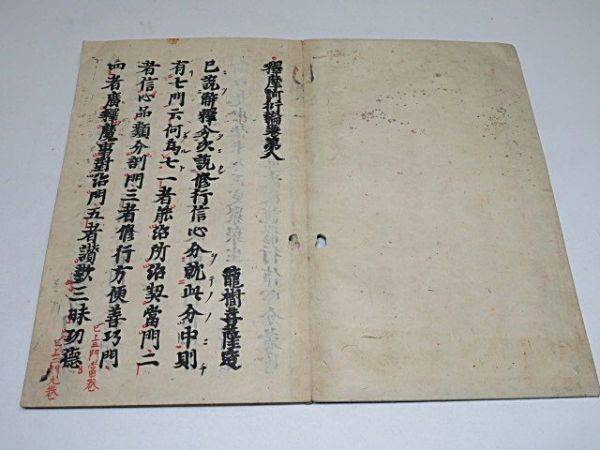 釋摩訶衍論卷第八
龍樹菩薩造
已說解釋分次說修行信心分就此分中則
有七門云何為七一者能治所治契當門二
者信心品類分剖門三者修行方便善巧門
四者廣釋魔事對治門五者讚歎三昧功德
已上三門當卷